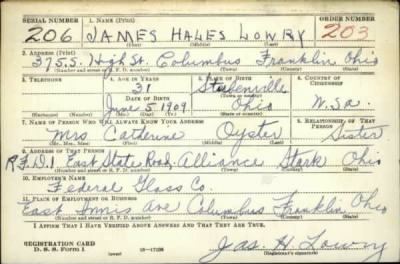 SERIAL NUMBER 1. NAME (Print) ORDER NUMBER
206 JAMES HALES LOWRY 203
(First) (Middle) (Last)
2. ADDRESS (Print)
375 S. High St. Columbus Franklin Ohio
(Number and street or R. F. D. number) (Town) (County) (State)
3. TELEPHONE 4. AGE IN YEARS 5. PLACE OF BIRTH 6. COUNTRY OF CITIZENSHIP
31 Steubenville
DATE OF BIRTH (Town or county)
June 5 1909 Ohio U.S.A.
(Exchange) (Number) (Mo.) (Day) (Yr.) (State or country)
7. NAME OF PERSON WHO WILL ALWAYS KNOW YOUR ADDRESS 8. RELATIONSHIP OF THAT PERSON
Mrs Catherine Oyster Sister
(Mr., Mrs., Miss) (First) (Middle) (Last)
9. ADDRESS OF THAT PERSON
R.F.D. 1 East State Road. Alliance Stark Ohio
(Number and street or R. F. D. number) (Town) (County) (State)
10. EMPLOYER'S NAME
Federal Glass Co.
11. PLACE OF EMPLOYMENT OR BUSINESS
East Innis Ave Columbus Franklin, Ohio
(Number and street or R. F. D. number) (Town) (County) (State)
I AFFIRM THAT I HAVE VERIFIED ABOVE ANSWERS AND THAT THEY ARE TRUE.
REGISTRATION CARD
D. S. S. Form 1 (over) 16—17105
Jas. H. Lowry
(Registrant's signature)